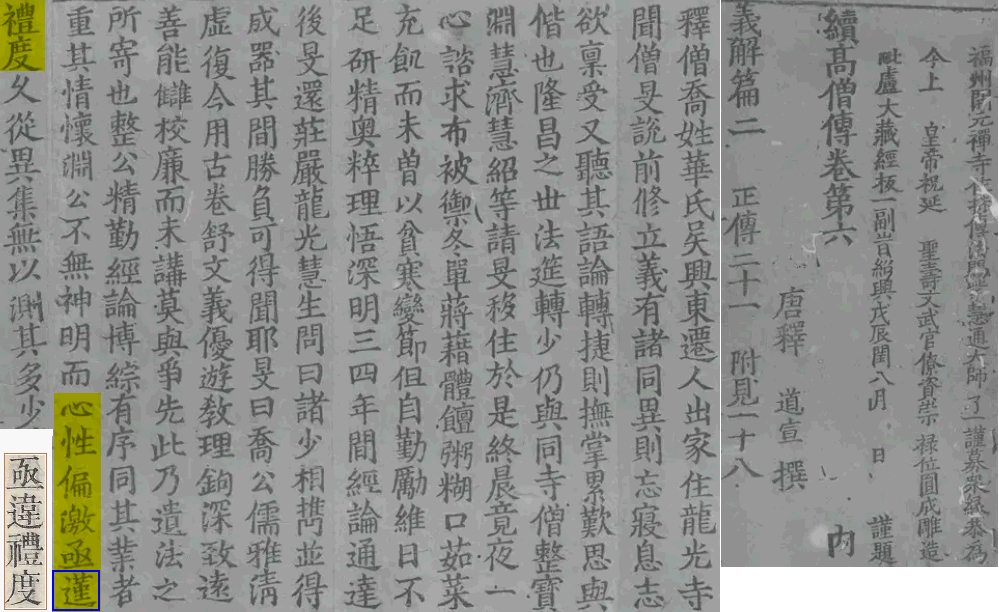 福州開元禪寺住持傳法賜紫慧通大師了一謹募衆緣恭為
今上 皇帝祝延 聖壽文武官僚資崇祿位圓成雕造
毗盧大藏經板一副旹紹興戊辰閏八月 日 謹題
續高僧傳卷第六 內
唐釋 道宣 撰
義解篇二 正傳二十一 附見一十八
釋僧喬姓華氏吳興東遷人出家住龍光寺
聞僧旻說前修立義有諸同異則忘寢息志
欲稟受又聽其語論轉捷則撫掌累歎思與
偕也隆昌之世法筵轉少仍與同寺僧整寶
淵慧濟慧紹等請旻移住於是終晨竟夜一
心諮求布被禦冬單蔣藉體饘粥糊口茹菜
充飢而未曾以貧寒變節但自勤勵維日不
足研精奧粹理悟深明三四年間經論通達
後旻還莊嚴龍光慧生問曰諸少相攜並得
成器其間勝負可得聞耶旻曰喬公儒雅清
虛復今用古卷舒文義優遊教理鉤深致遠
善能讎校廉而未講莫與爭先此乃遺法之
所寄也整公精勤經論博綜有序同其業者
重其情懷淵公不無神明而心性偏激亟違
禮度久從異集無以測其多少
亟違禮度